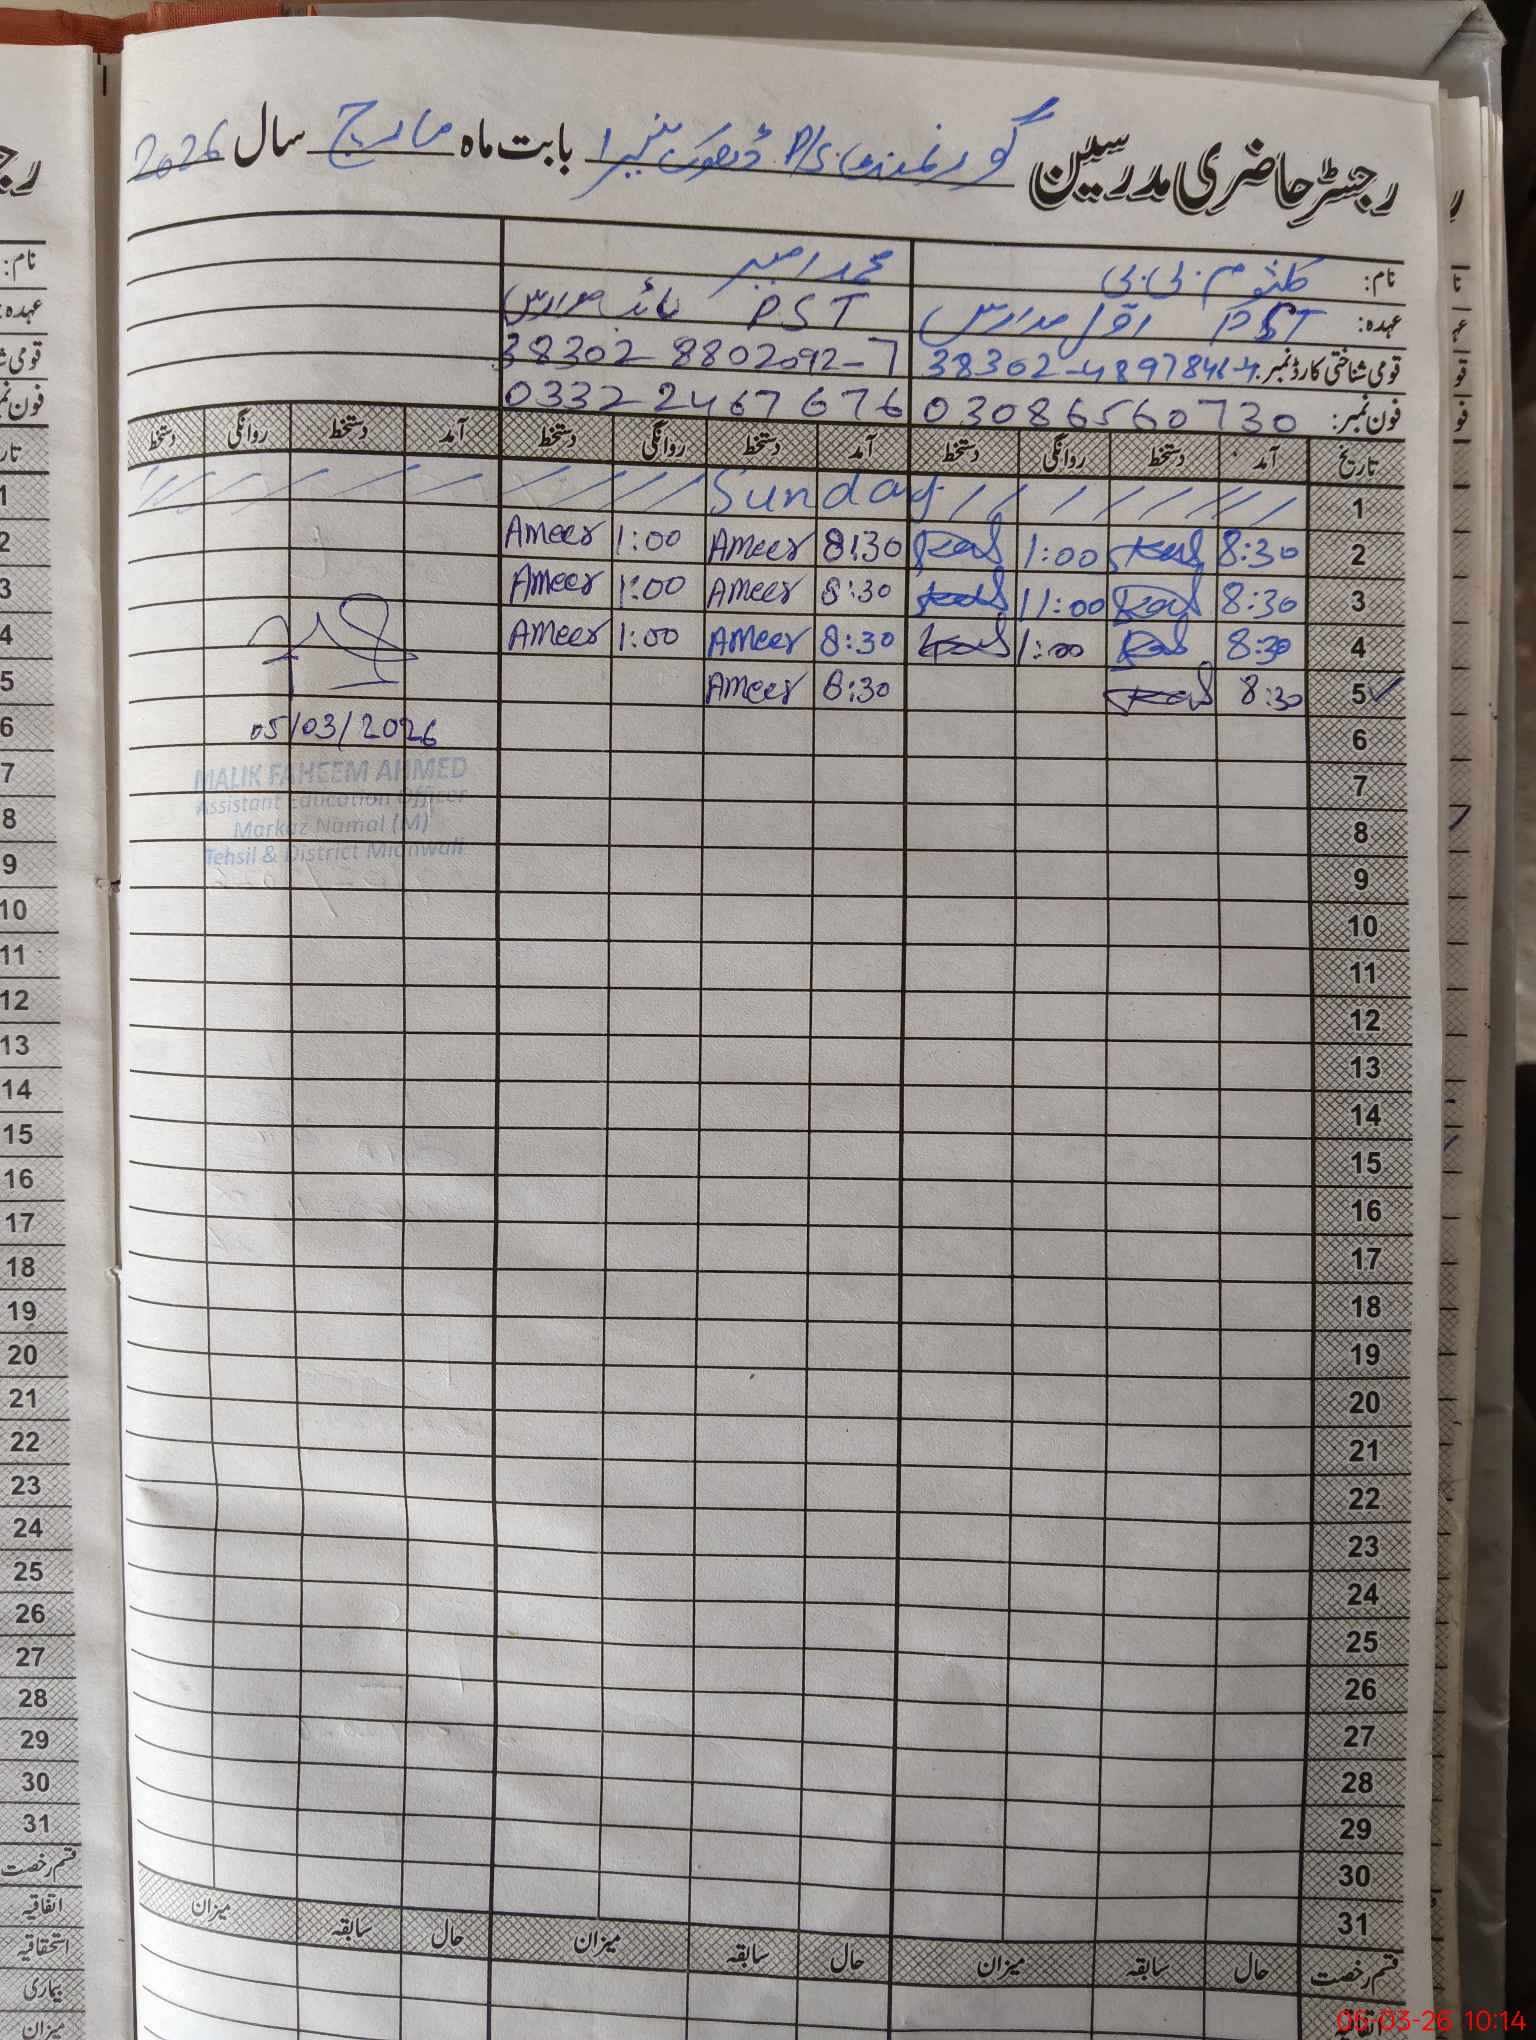 رجسٹر حاضری مدرسین گورنمنٹ P/S ڈھوک بابت ماہ مارچ سال 2026
نام: کلثوم بی بی محمد امیر
عہدہ: PST اول مدرس PST نائب مدرس
قومی شناختی کارڈ نمبر: 38302-4897846-4 38302-8802092-7
فون نمبر: 03086560730 03322467676
تاریخ آمد دستخط روانگی دستخط آمد دستخط روانگی دستخط آمد دستخط روانگی دستخط
1 Sunday
2 8:30 1:00 8:30 Ameer 1:00 Ameer
3 8:30 11:00 8:30 Ameer 1:00 Ameer
4 8:30 1:00 8:30 Ameer 1:00 Ameer
5 8:30 8:30 Ameer
6
05/03/2026
7
MALIK FAHEEM AHMED
Assistant Education Officer
8
Markaz Namal (M)
Tehsil & District Mianwali
9
10
11
12
13
14
15
16
17
18
19
20
21
22
23
24
25
26
27
28
29
30
31
قسم رخصت حال سابقہ میزان حال سابقہ میزان حال سابقہ میزان
اتفاقیہ
نام:
عہدہ:
قومی
فون
1
2
3
4
5
6
7
8
9
10
11
12
13
14
15
16
17
18
19
20
21
22
23
24
25
26
27
28
29
30
31
قسم رخصت
اتفاقیہ
استحقاقیہ
بیماری
میزان
05-03-26 10:14